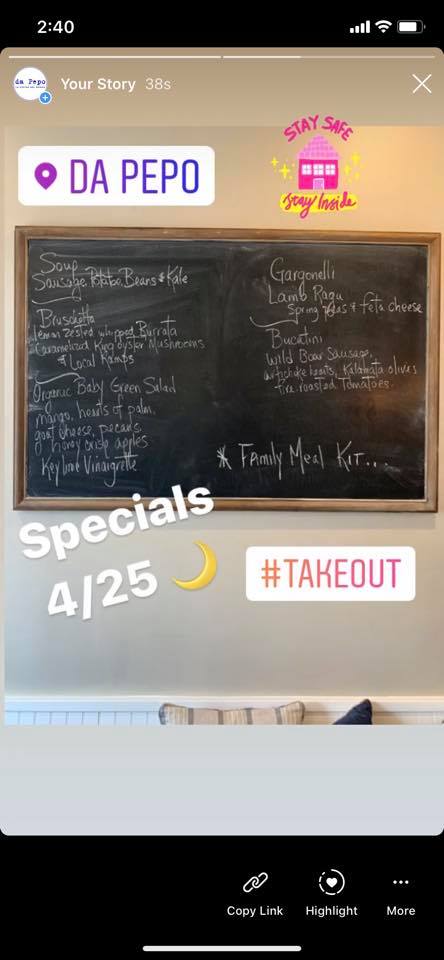 2:40
da Pepo
Your Story 38s
DA PEPO
STAY SAFE
Stay Inside
Soup
Sausage, Potato, Beans & Kale
Bruschetta
Lemon zested whipped Burrata
Caramelized King oyster Mushrooms
& Local Ramps
Organic Baby Green Salad
mango, hearts of palm,
goat cheese, pecans
honey crisp apples
Key lime Vinaigrette
Gargonelli
Lamb Ragu
Spring Peas & feta cheese
Bucatini
Wild Boar Sausage,
artichoke hearts, Kalamata olives
Fire roasted Tomatoes.
* Family Meal Kit...
Specials
4/25
#TAKEOUT
Copy Link
Highlight
More